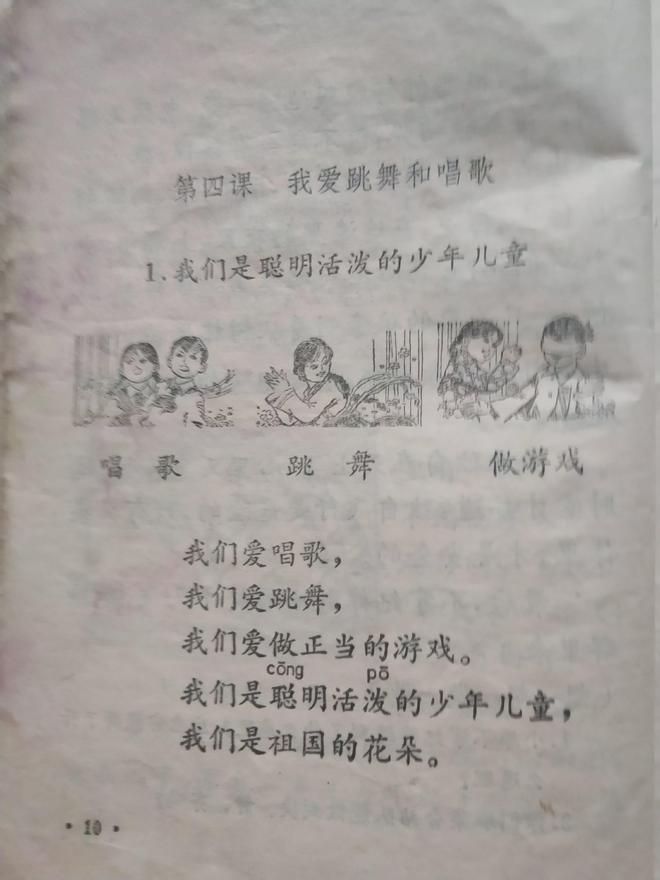 第四课 我爱跳舞和唱歌
1.我们是聪明活泼的少年儿童
唱歌 跳舞 做游戏
我们爱唱歌，
我们爱跳舞，
我们爱做正当的游戏。
cōng pō
我们是聪明活泼的少年儿童，
我们是祖国的花朵。
·10·